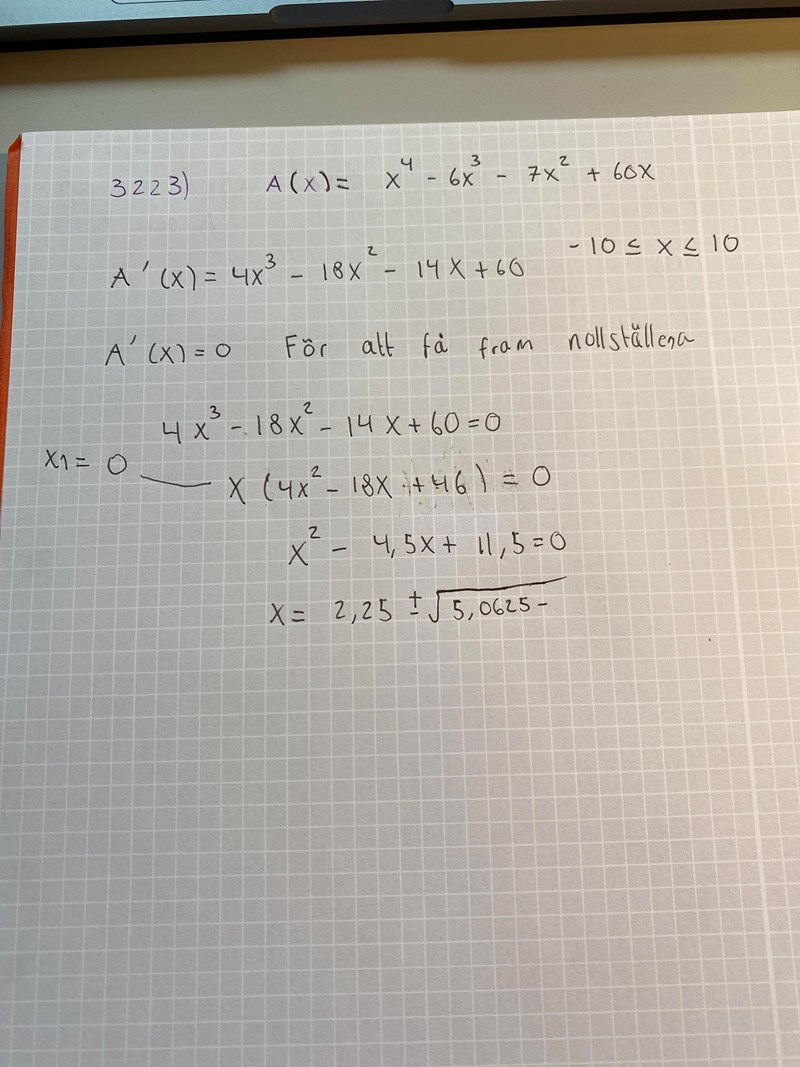 3223) A(x) = x⁴ - 6x³ - 7x² + 60x
-10 ≤ x ≤ 10
A'(x) = 4x³ - 18x² - 14x + 60
A'(x) = 0 För att få fram nollställena
4x³ - 18x² - 14x + 60 = 0
x1 = 0 — x (4x² - 18x + 46) = 0
x² - 4,5x + 11,5 = 0
x = 2,25 ± √5,0625 -